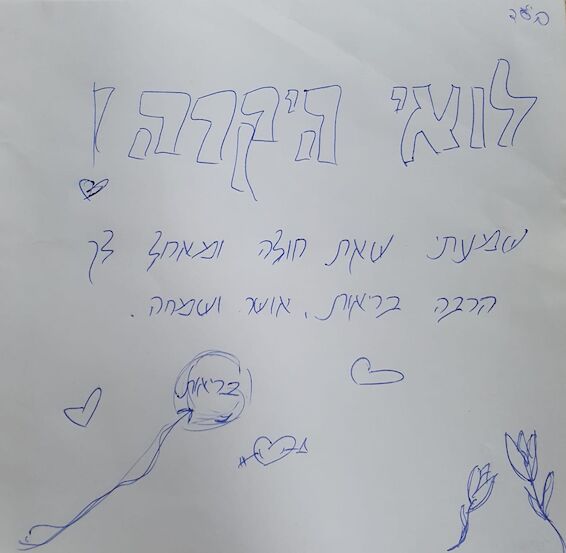 בע"ה
לוצי היקרה!
שמעתי שאת חולה ומאחל לך
הרבה בריאות, אושר ושמחה.
בריאות